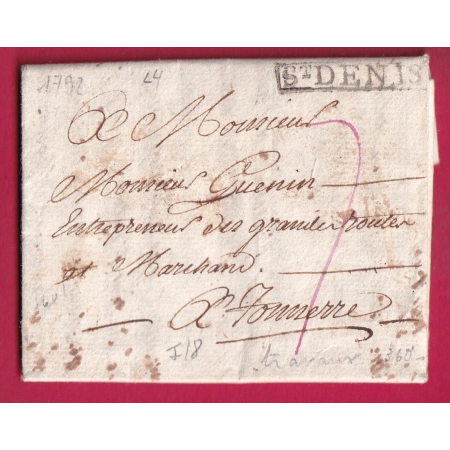 1792 L4 ST DENIS
A Monsieur
Monsieur Guenin
Entrepreneur des grandes routes
et Marchand.
A Tonnerre
I/8 travaux 360